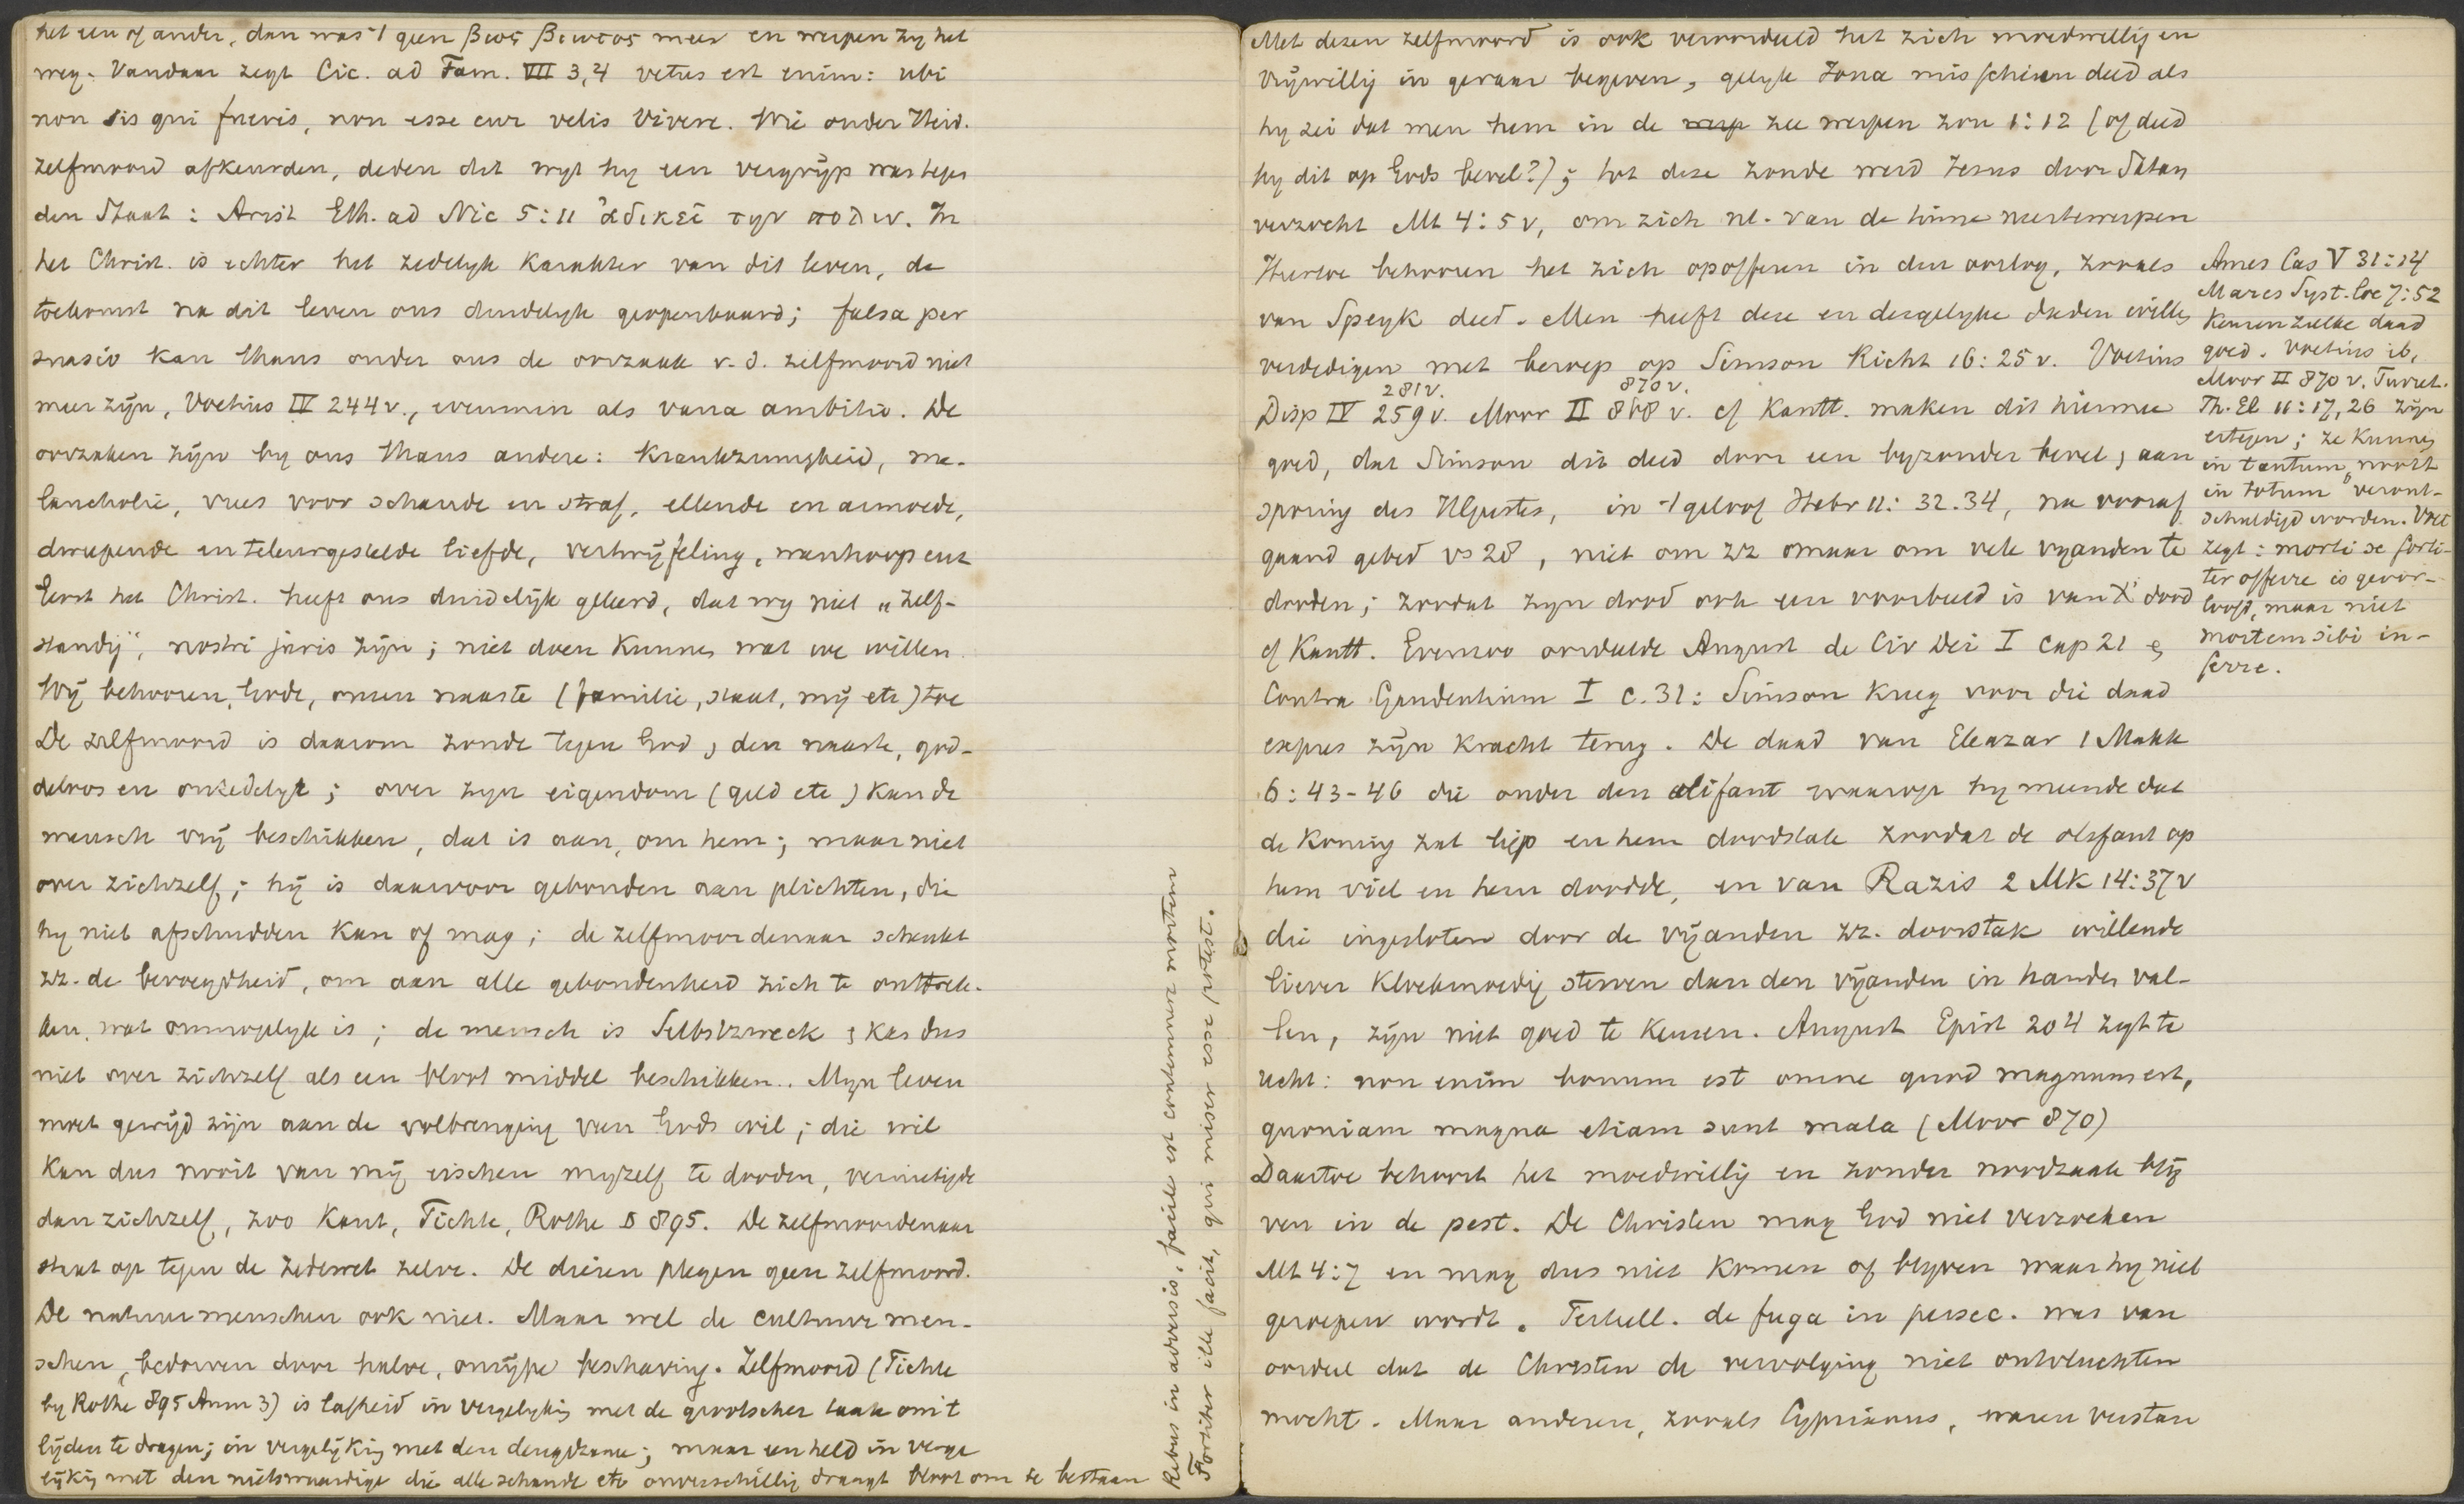 het een of ander, dan was 't geen βιος βιωτος meer en werpen zy het
weg. Vandaar zegt Cic. ad Fam. VII 3,4 vetus est enim: ubi
non sis qui fueris, non esse cur velis vivere. Wie onder Heid.
zelfmoord afkeurden, deden dit wyl hy een vergrijp was tegen
den Staat: Arist Eth. ad Nic 5:11 ἀδικεῖ την πολιν. In
het Christ. is echter het zedelyk karakter van dit leven, de
toekomst na dit leven ons duidelyk geopenbaard; falsa per
suasio kan thans onder ons de oorzaak v. d. zelfmoord niet
meer zijn, Voetius IV 244v., evenmin als vana ambitio. De
oorzaken zijn by ons thans andere: krankzinnigheid, me-
lancholie, vrees voor schande en straf, ellende en armoede,
dweepende en teleurgestelde liefde, vertwijfeling, wanhoop enz
Eerst het Christ. heeft ons duidelijk geleerd, dat wy niet „zelf-
standig", nostri juris zijn; niet doen kunnen wat we willen.
Wij behooren, Gode, onzen naaste (familie, staat, mij etc) toe
De zelfmoord is daarom zonde tegen God, den naaste, god-
deloos en onzedelyk; over zyn eigendom (geld etc) kan de
mensch vrij beschikken, dat is aan, om hem; maar niet
over zichzelf; hij is daarvoor gebonden aan plichten, die
hy niet afschudden kan of mag; de zelfmoordenaar schenkt
zz. de bevoegdheid, om aan alle gebondenheid zich te onttrek-
ken, wat onmogelyk is; de mensch is Selbstzweck & kan dus
niet over zichzelf als een bloot middel beschikken. Myn leven
moet gewijd zijn aan de volbrenging van Gods wil; die wil
kan dus nooit van mij eischen myzelf te dooden, vernietigde
dan zichzelf, zoo Kant, Fichte, Rothe § 895. De zelfmoordenaar
staat op tegen de zedewet zelve. De dieren plegen geen zelfmoord.
De natuurmenschen ook niet. Maar wel de cultuurmen-
schen, bedorven door halve, onrijpe beschaving. Zelfmoord (Fichte
by Rothe 895 Anm 3) is lafheid in vergelyking met de grootscher taak om 't
lijden te dragen; in vergelijking met den deugdzame; maar een held in verge
lijking met den nietswaardige die alle schande etc onverschillig draagt bloot om te bestaan
Rebus in adversis, facile est contemnere mortem
Fortiter ille facit, qui miser esse potest.
Met dezen zelfmoord is ook veroordeeld het zich moedwillig en
vrijwillig in gevaar begeven, gelyk Jona misschien deed als
hy zei dat men hem in de zee werpen zou 1:12 (of deed
hy dit op Gods bevel?); tot deze zonde werd Jezus door Satan
verzocht Mt 4:5v, om zich nl. van de tinne neertewerpen
Hiertoe behooren het zich opofferen in den oorlog, zooals
van Speyk deed. Men heeft deze en dergelyke daden willen
verdedigen met beroep op Simson Richt 16:25v. Voetius
281v. 870 v.
Disp IV 259v. Moor II 868 v. cf Kantt. maken dit hiermee
goed, dat Simson dit deed door een byzonder bevel, aan
sporing des H Geestes, in 't geloof Hebr 11:32.34, na vooraf
gaand gebed vs 28, niet om zz omaar om vele vyanden te
dooden; zoodat zyn dood ook een voorbeeld is van X' dood
cf Kantt. Evenzoo oordeelde August de Civ Dei I cap 21 &
Contra Gaudentium I c. 31: Simson kreeg voor die daad
expres zijn kracht terug. De daad van Eleazar 1 Makk
6:43-46 die onder den olifant waarop hy meende dat
de koning zat liep en hem doodstak zoodat de olifant op
hem viel en hem doodde, en van Razis 2 Mk 14:37v
die ingesloten door de vijanden zz. doorstak willende
liever kloekmoedig sterven dan den vijanden in handen val-
len, zijn niet goed te keuren. August Epist 204 zegt te
recht: non enim bonum est omne quod magnum est,
quoniam magna etiam sunt mala (Moor 870)
Daartoe behoort het moedwillig en zonder noodzaak blij
ven in de pest. De Christen mag God niet verzoeken
Mt 4:7 en mag dus niet komen of blyven waar hy niet
geroepen wordt. Tertull. de fuga in persec. was van
oordeel dat de Christen de vervolging niet ontvluchten
mocht. Maar anderen, zooals Cyprianus, waren verstan
Ames Cas V 31:14
Mares Syst. loc 7:52
keuren zulke daad
goed. Voetius ib,
Moor II 870 v. Turret.
Th. El 11:17,26 zijn
ertegen; ze kunnen
in tantum, nooit
in totum veront-
schuldigd worden. Voet
zegt: morti se forti-
ter offerre is geoor-
loofd, maar niet
mortem sibi in-
ferre.